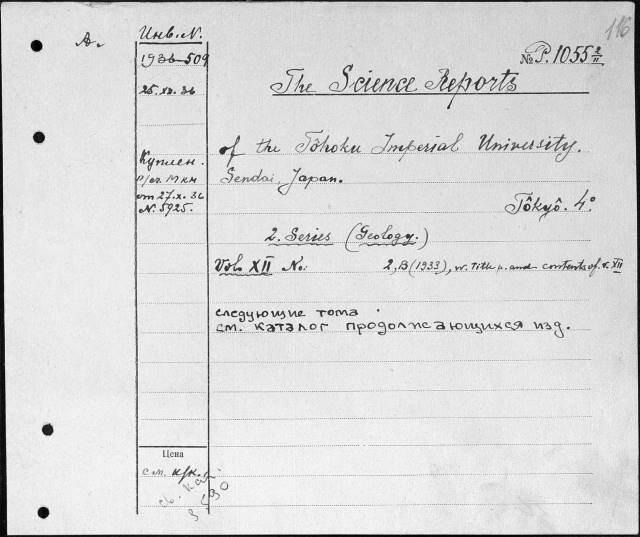 116
А.
Инв. N.
1936-509
№ P. 1055 2/II
25.XII.36
The Science Reports
of the Tôhoku Imperial University.
Sendai, Japan.
Куплен.
от 27.X.36
N. 5925.
Tôkyô. 4°
2. Series (Geology.)
Vol. XII No: 2, B (1933), w. Title p. and contents of v. XII
следующие тома
см. каталог продолжающихся изд.
Цена
см. к/к.